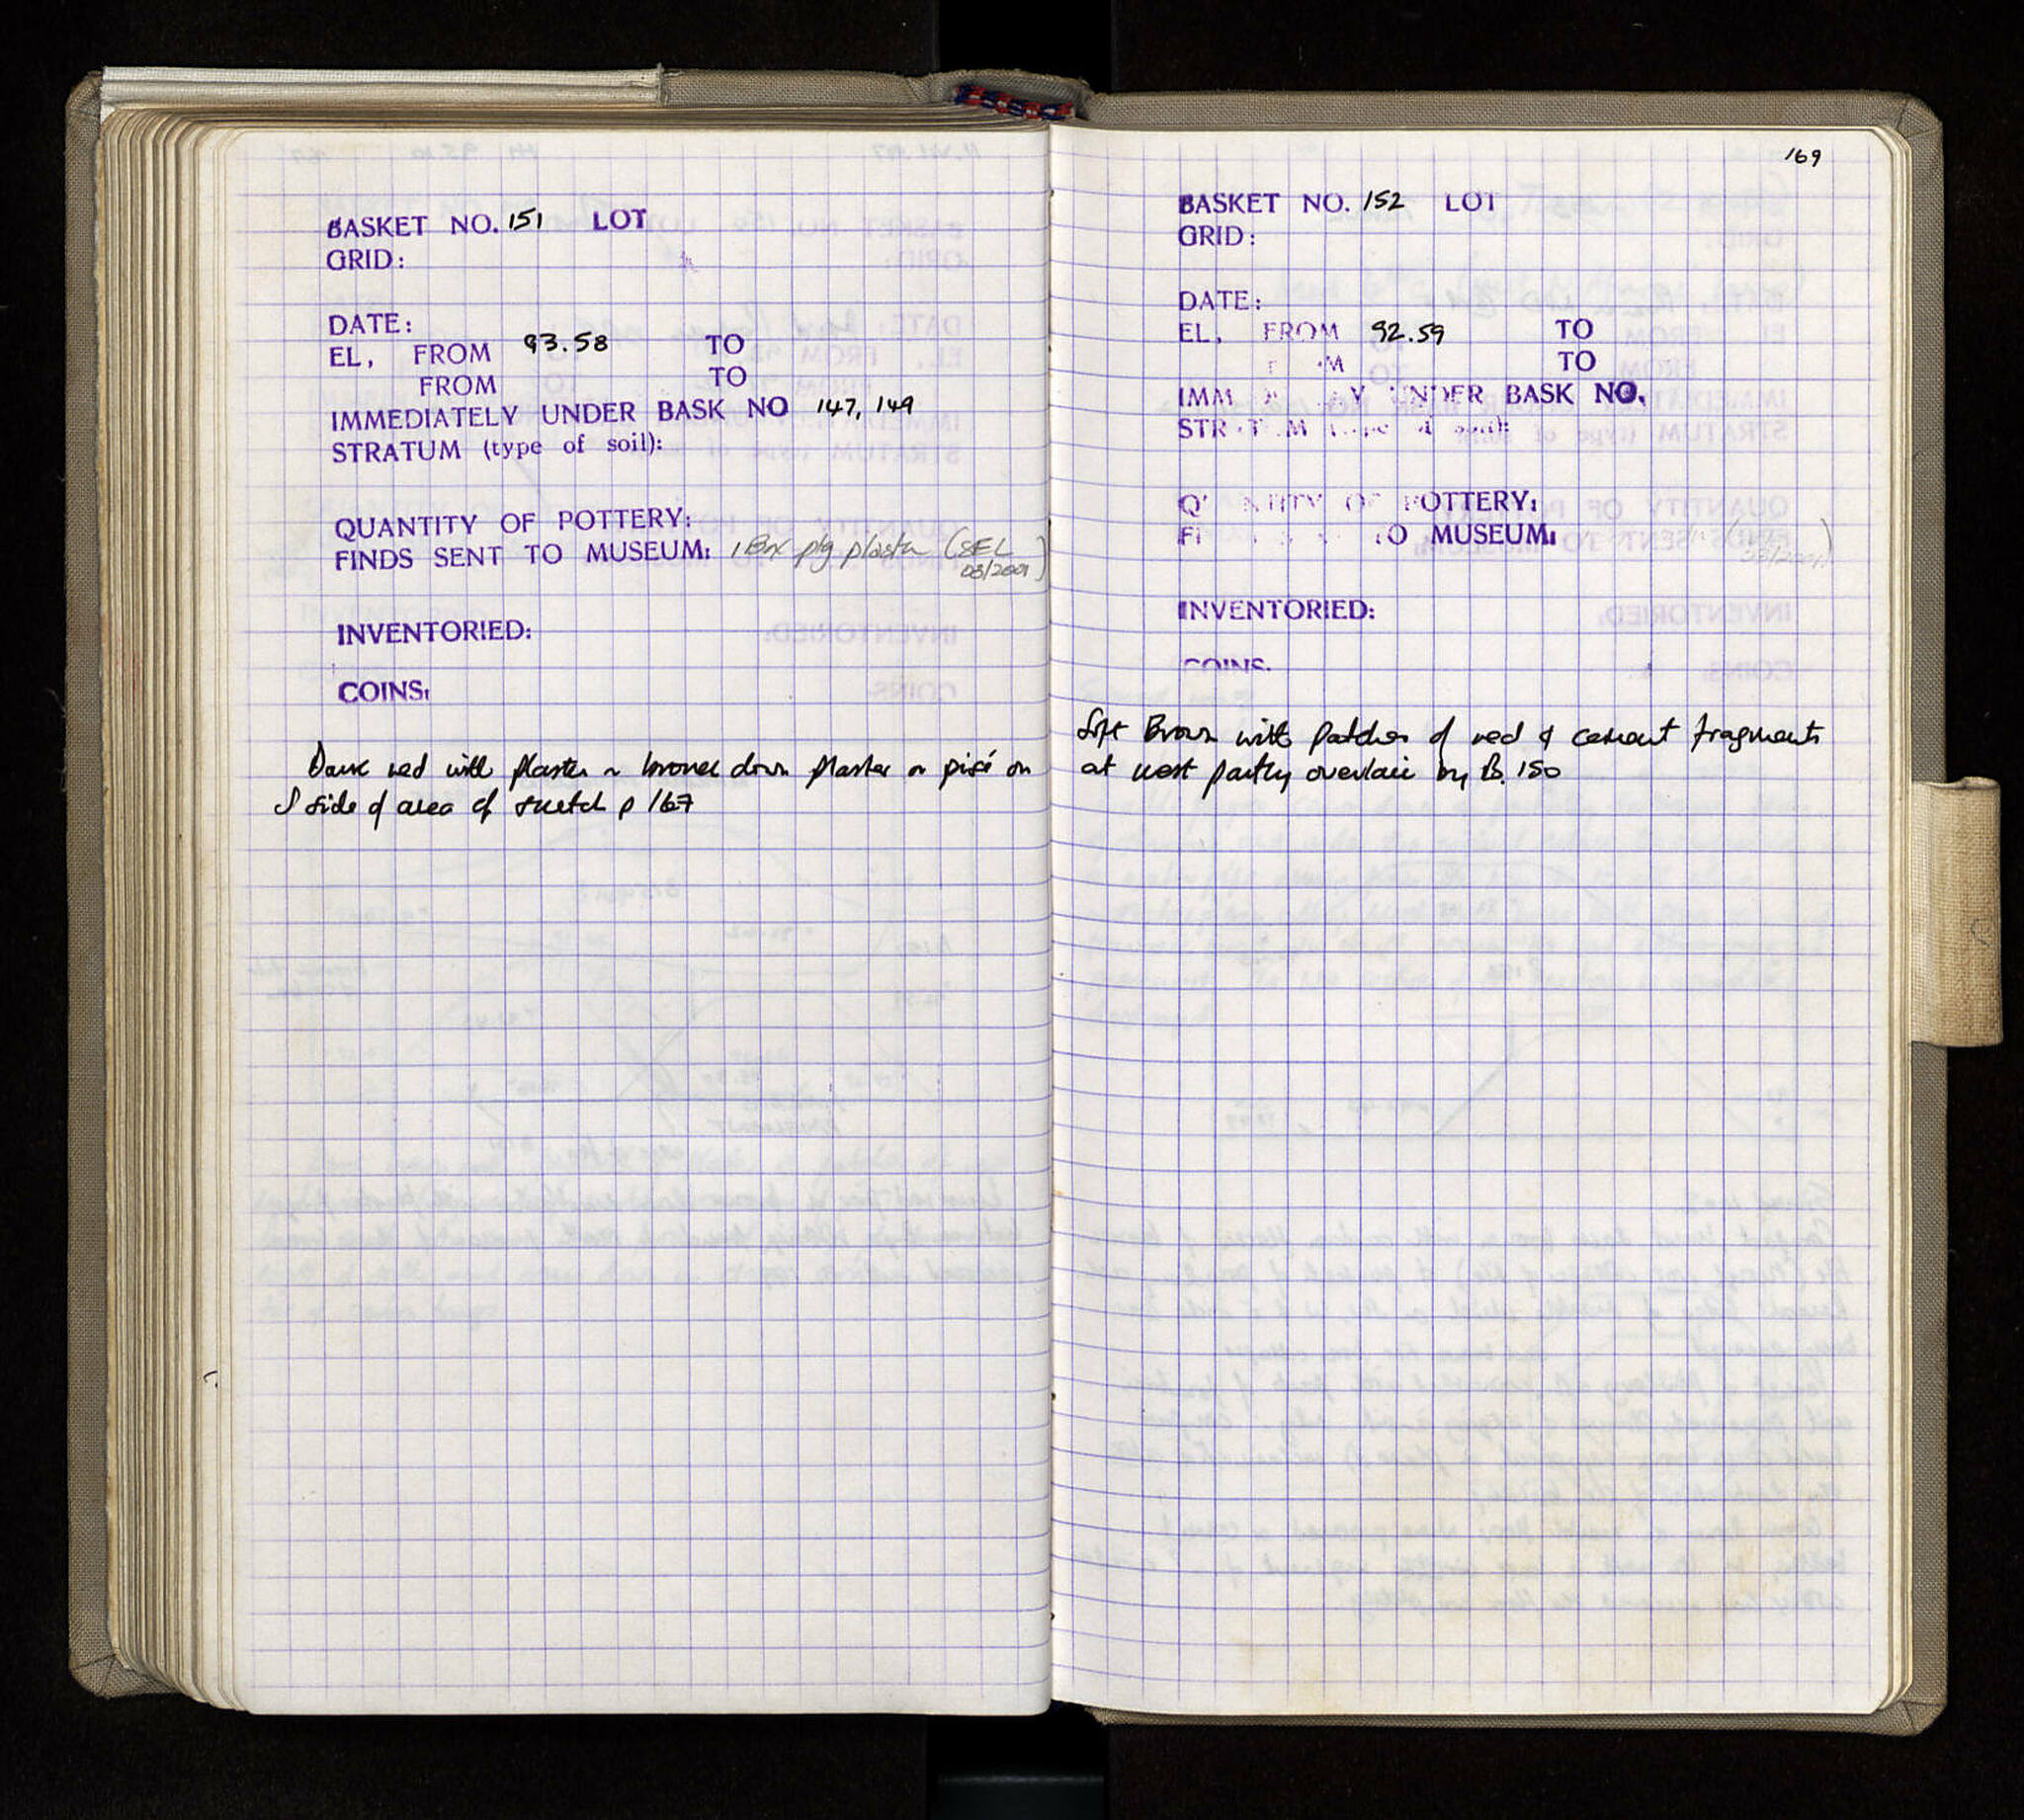 BASKET NO. 151 LOT
GRID:
DATE:
EL, FROM 93.58 TO
FROM TO
IMMEDIATELY UNDER BASK NO 147, 149
STRATUM (type of soil):
QUANTITY OF POTTERY:
FINDS SENT TO MUSEUM: 1 Box ptg plaster (SEL
03/2001)
INVENTORIED:
COINS:
Dark red with plaster down plaster or pisé on
S side of area of sketch p 167
169
BASKET NO. 152 LOT
GRID:
DATE:
EL, FROM 92.59 TO
TO
UNDER BASK NO.
POTTERY:
TO MUSEUM:
INVENTORIED:
COINS.
Soft Brown with patches of red & cement fragments
at west partly overlain by B. 150